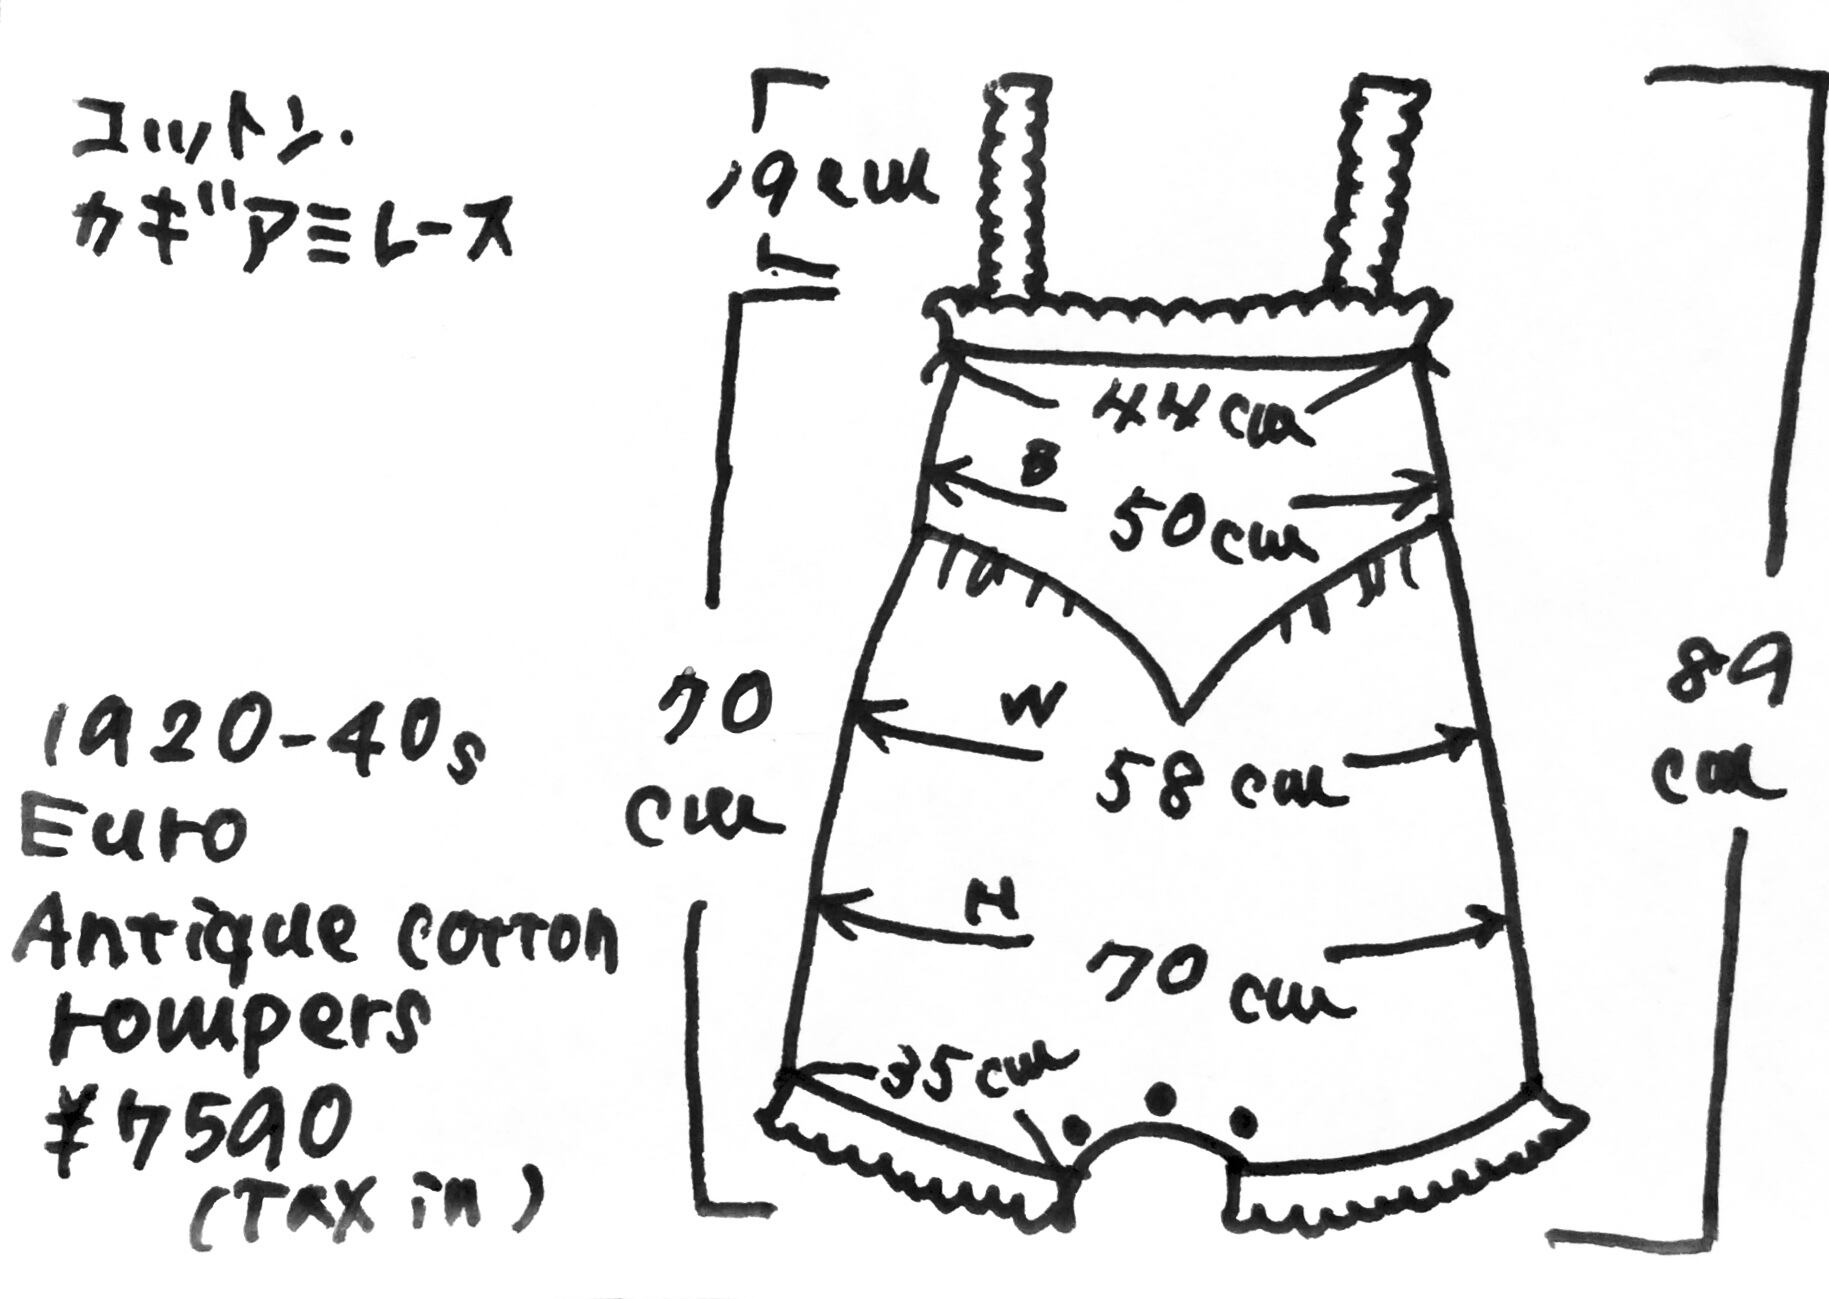 コットン・
カギアミレース
19cm
44cm
B
50cm
70
cm
W
58cm
89
cm
H
70cm
35cm
1920-40s
Euro
Antique cotton
rompers
¥7590
(TAX in)